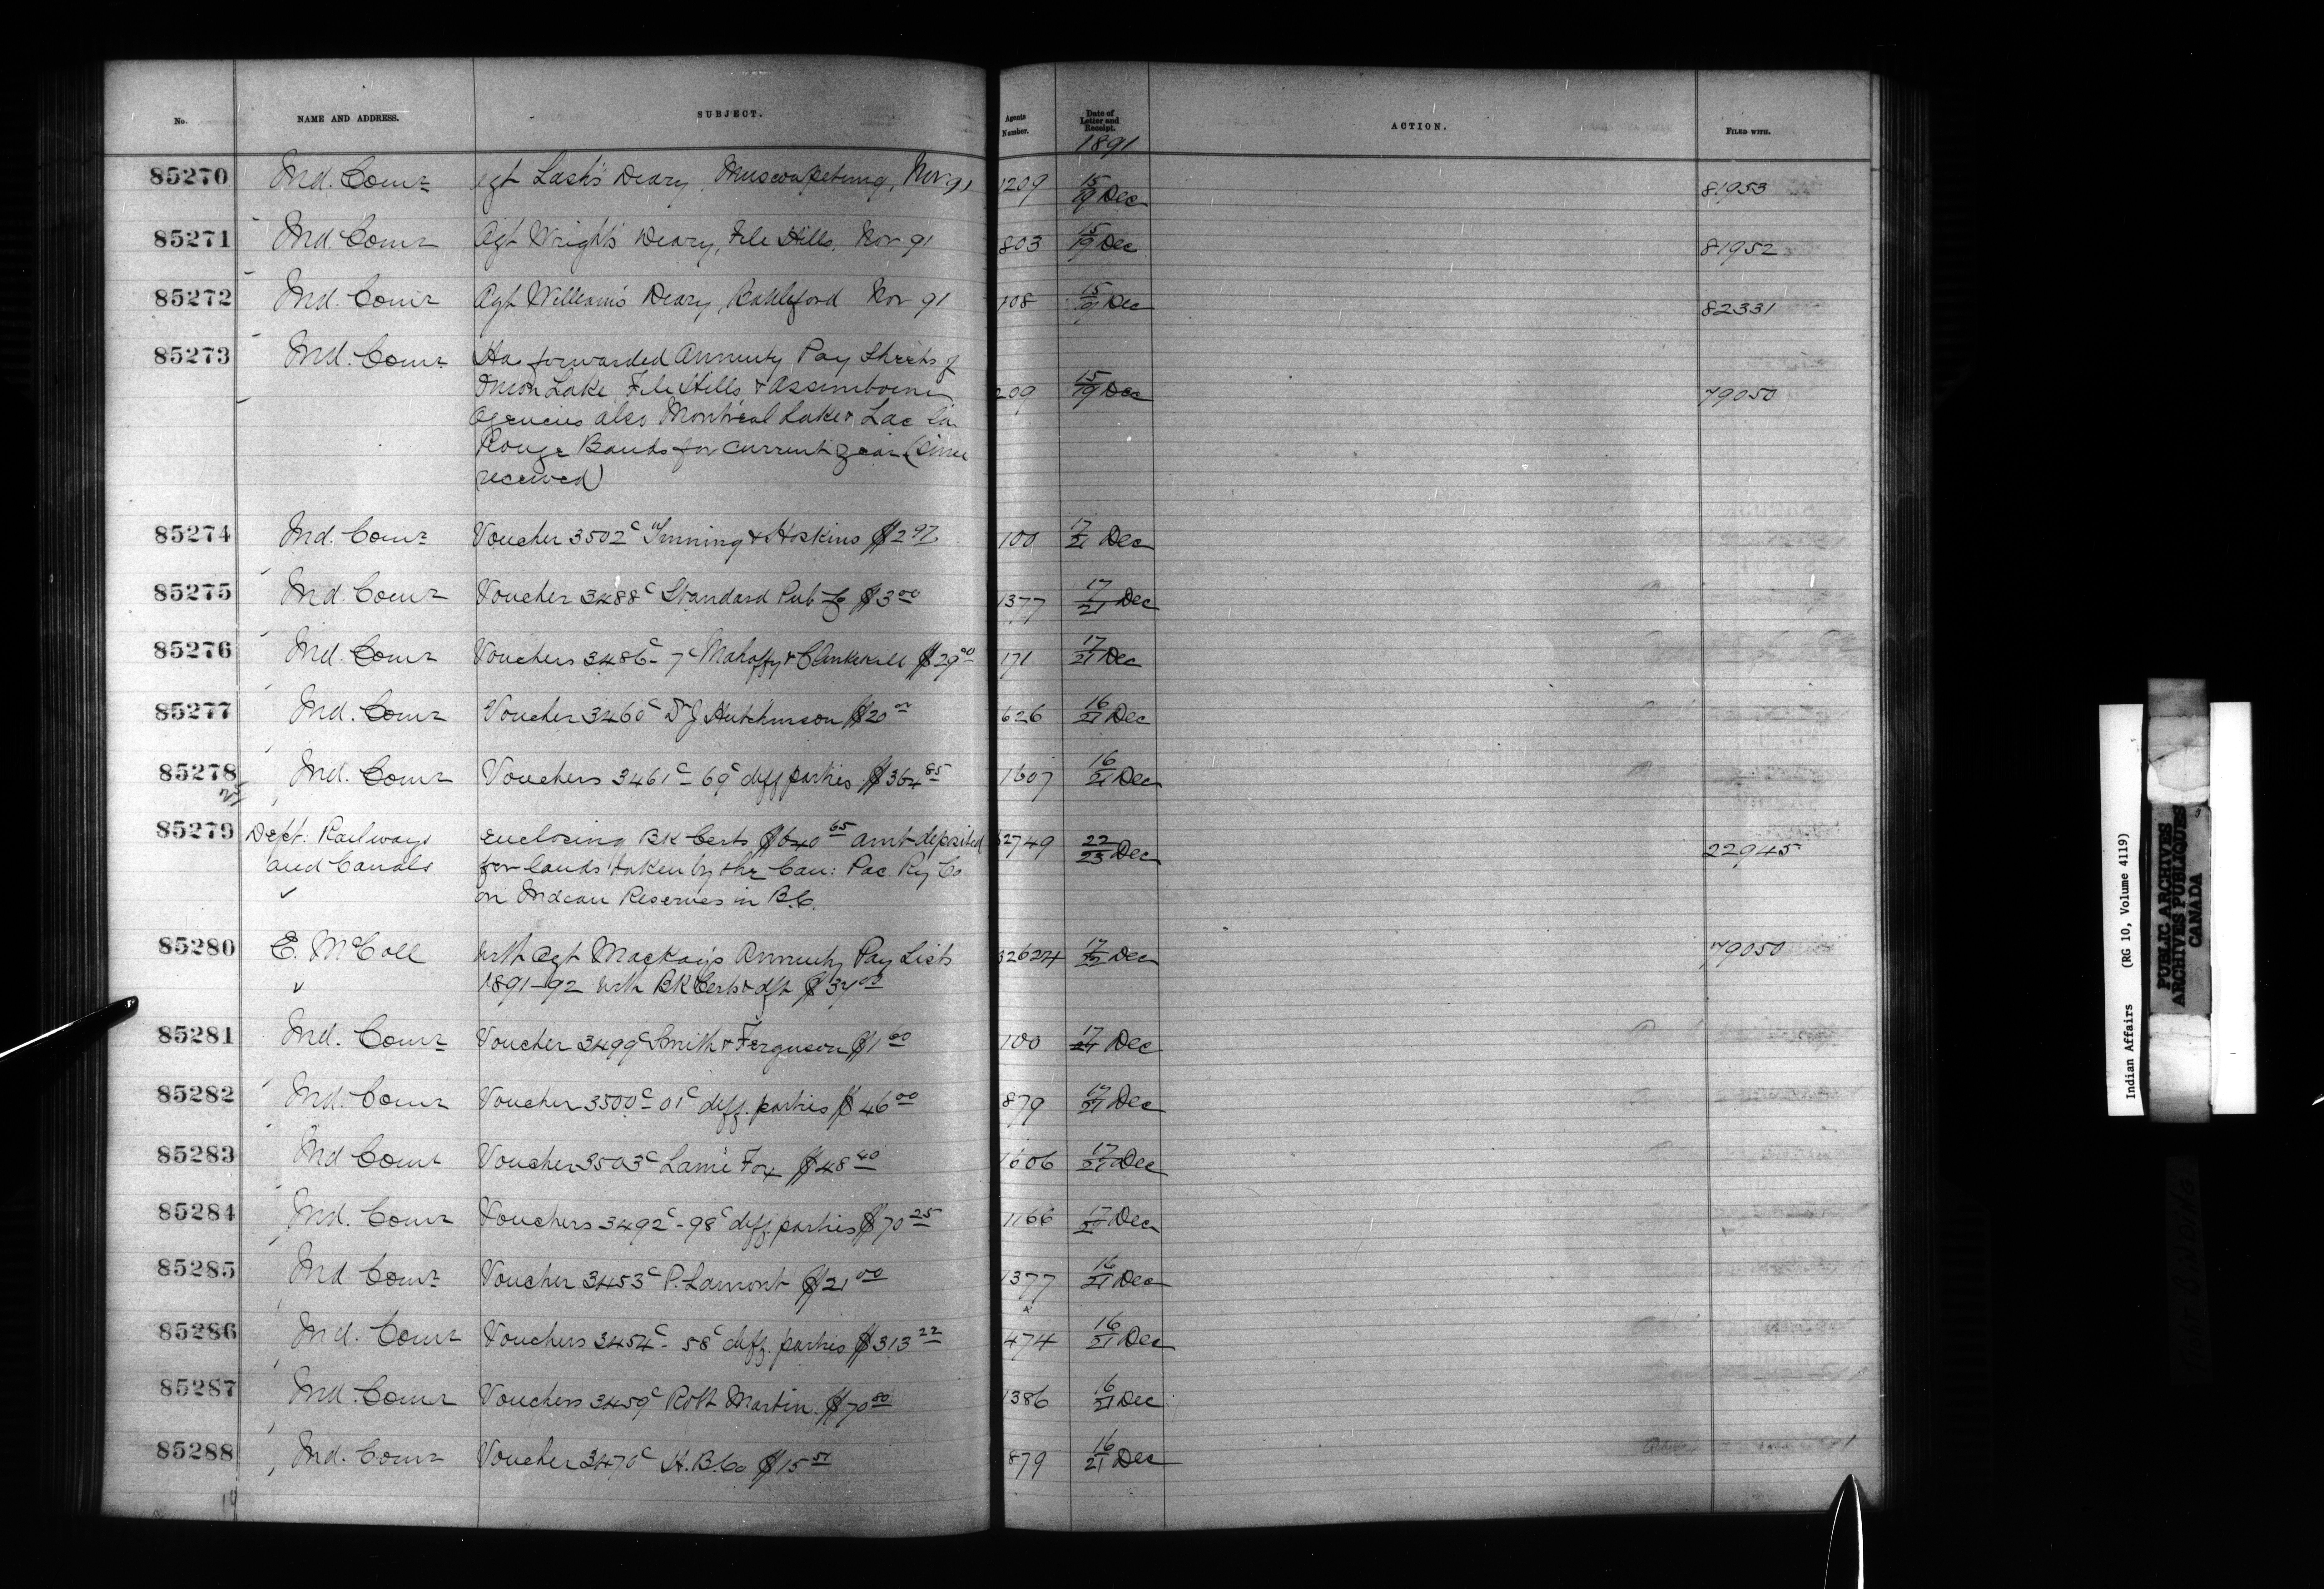 No. NAME AND ADDRESS. SUBJECT. Agents Number. Date of Letter and Receipt. ACTION. FILED WITH.
1891
85270 Ind. Comr Agt Lash's Deary, Muscowpetung, Nov 91 1209 15/19 Dec 81953
85271 Ind. Comr Agt Wright's Deary, File Hills, Nov 91 803 15/19 Dec 81952
85272 Ind. Comr Agt William's Deary, Battleford Nov 91 108 15/91 Dec 82331
85273 Ind. Comr Has forwarded Annuity Pay Sheets of
Onion Lake, File Hills & Assinniboine 209 15/19 Dec 79050
Agencies also Montreal Lake & Lac La
Rouge Bands for current year (Since
received)
85274 Ind. Comr Voucher 3502c Tinning & Hoskins $2 97 100 17/21 Dec
85275 Ind. Comr Voucher 3488c Standard Pub Co $3 00 1377 17/21 Dec
85276 Ind. Comr Vouchers 3486c-7c Mahaffy & Clinkskill $29 00 171 17/21 Dec
85277 Ind. Comr Voucher 3460c D J Hutchinson $20 00 626 16/21 Dec
85278 Ind. Comr Vouchers 3461c-69c diff parties $364 85 1607 16/21 Dec
85279 Dept: Railways enclosing BK Certs $640 65 amt deposited 62749 22/23 Dec 22945
and Canals for lands taken by the Can: Pac Ry Co
on Indian Reserves in B.C.
85280 E. McColl With Agt Mackay's Annuity Pay Lists 32624 17/22 Dec 79050
1891-92 with BK Certs & dft $34 00
85281 Ind. Comr Voucher 3499c Smith & Ferguson $1 60 100 17/21 Dec
85282 Ind. Comr Voucher 3500c-01c diff. parties $46 00 879 17/21 Dec
85283 Ind Comr Voucher 3503c Lame Fox $48 40 1606 17/21 Dec
85284 Ind. Comr Vouchers 3492c-98c diff. parties $70 25 1166 17/21 Dec
85285 Ind Comr Voucher 3453c P. Lamont $21 00 1377 16/21 Dec
85286 Ind. Comr Vouchers 3454c-58c diff. parties $313 22 474 16/21 Dec
85287 Ind. Comr Vouchers 3459c Robt Martin $70 80 1386 16/21 Dec
85288 Ind. Comr Voucher 3470c H.B.Co $15 51 879 16/21 Dec
Indian Affairs (RG 10, Volume 4119)
PUBLIC ARCHIVES
ARCHIVES PUBLIQUES
CANADA